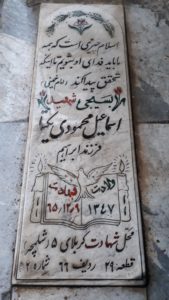 اسلام چیزی است که همه
ما باید فدای او بشویم تا اینکه
تحقق پیدا کند امام خمینی
بسیجی شهید
اسماعیل محمودی یکتا
فرزند ابراهیم
ولادت
۱۳۴۷
شهادت
۶۵/۱۲/۹
محل شهادت کربلای ۵ شلمچه
قطعه ۲۹ ردیف ۶۶ شماره ۲